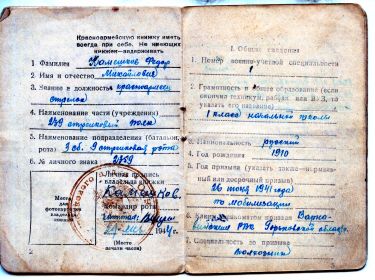 Красноармейскую книжку иметь
всегда при себе. Не имеющих
книжек—задерживать
1. Фамилия Камешков Федор
2. Имя и отчество Михайлович
3. Звание и должность красноармеец
стрелок
4. Наименование части (учреждения)
стрелковый полк
5. Наименование подразделения (батальон,
рота) 3 сб. 9 стрелковая рота
6. № личного знака 2759
Личная подпись
владельца книжки
Место
для
фотокарточки
владельца
книжки
Командир роты
(Место
печати части)
I. Общие сведения
1. Номер военно-учетной специальности
1
2. Грамотность и общее образование (если
окончил техникум, рабфак или ВУЗ, то
указать его название)
1 класс начальной школы
3. Национальность русский
4. Год рождения 1910
5. Год призыва (указать также—нормаль-
ный или досрочный призыв)
26 июня 1941 года
по мобилизации
6. Каким военкоматом призван
РВК Горьковской области
7. Специальность до призыва
колхозник